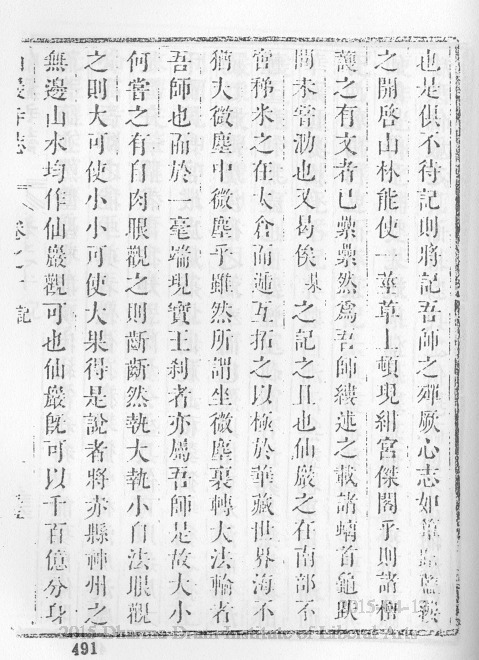 也是俱不待記則將記吾師之殫厥心志如篳路藍縷
之開啓山林能使一莖草上頓現紺宮傑閣乎則諸檀
護之有文者已纍纍然爲吾師縷述之載諸螭首龜趺
間未嘗泐也又曷俟 之記之且也仙巖之在南部不
啻稊米之在太倉而遞互拓之以極於華藏世界海不
猶大微塵中微塵乎雖然所謂坐微塵裏轉大法輪者
吾師也而於一毫端現寶王刹者亦屬吾師是故大小
何嘗之有自肉眼觀之則斷斷然執大執小自法眼觀
之則大可使小小可使大果得是說者將赤縣神州之
無邊山水均作仙巖觀可也仙巖旣可以千百億分身
巖寺志 卷之 記
491
2015 Institute of Liberal Arts